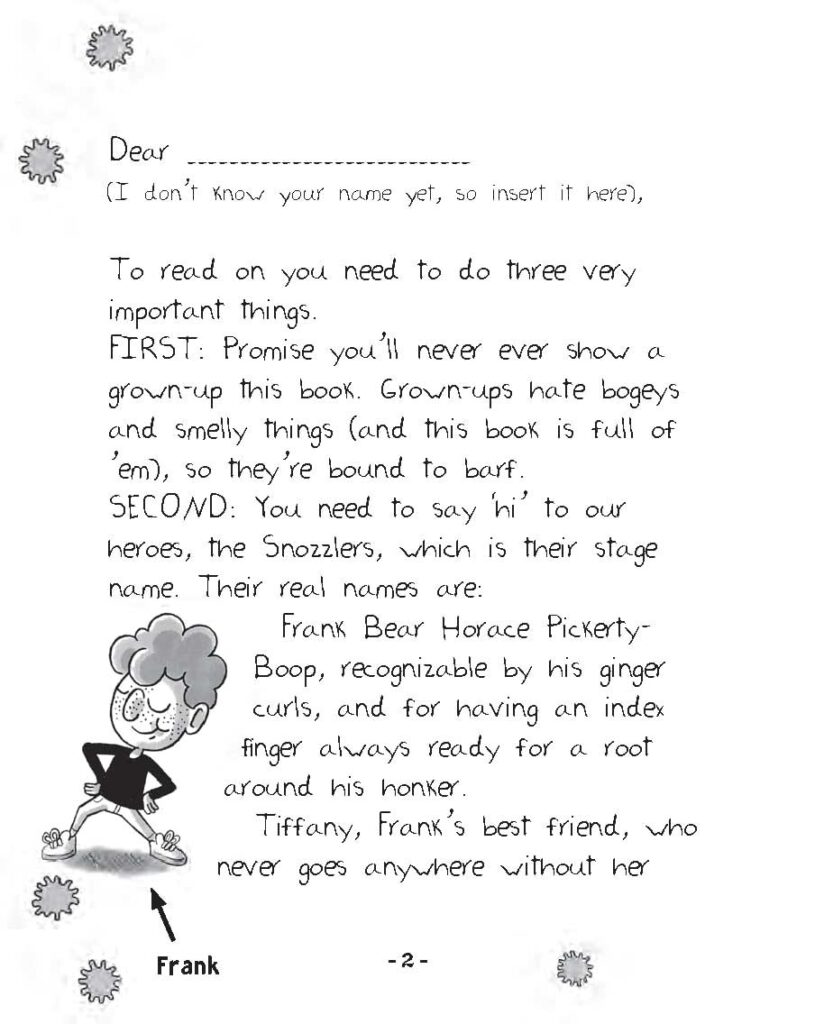 Dear
(I don't know your name yet, so insert it here),
To read on you need to do three very
important things.
FIRST: Promise you'll never ever show a
grown-up this book. Grown-ups hate bogeys
and smelly things (and this book is full of
'em), so they're bound to barf.
SECOND: You need to say 'hi' to our
heroes, the Snozzlers, which is their stage
name. Their real names are:
Frank Bear Horace Pickerty-
Boop, recognizable by his ginger
curls, and for having an index
finger always ready for a root
around his honker.
Tiffany, Frank's best friend, who
never goes anywhere without her
Frank
-2-